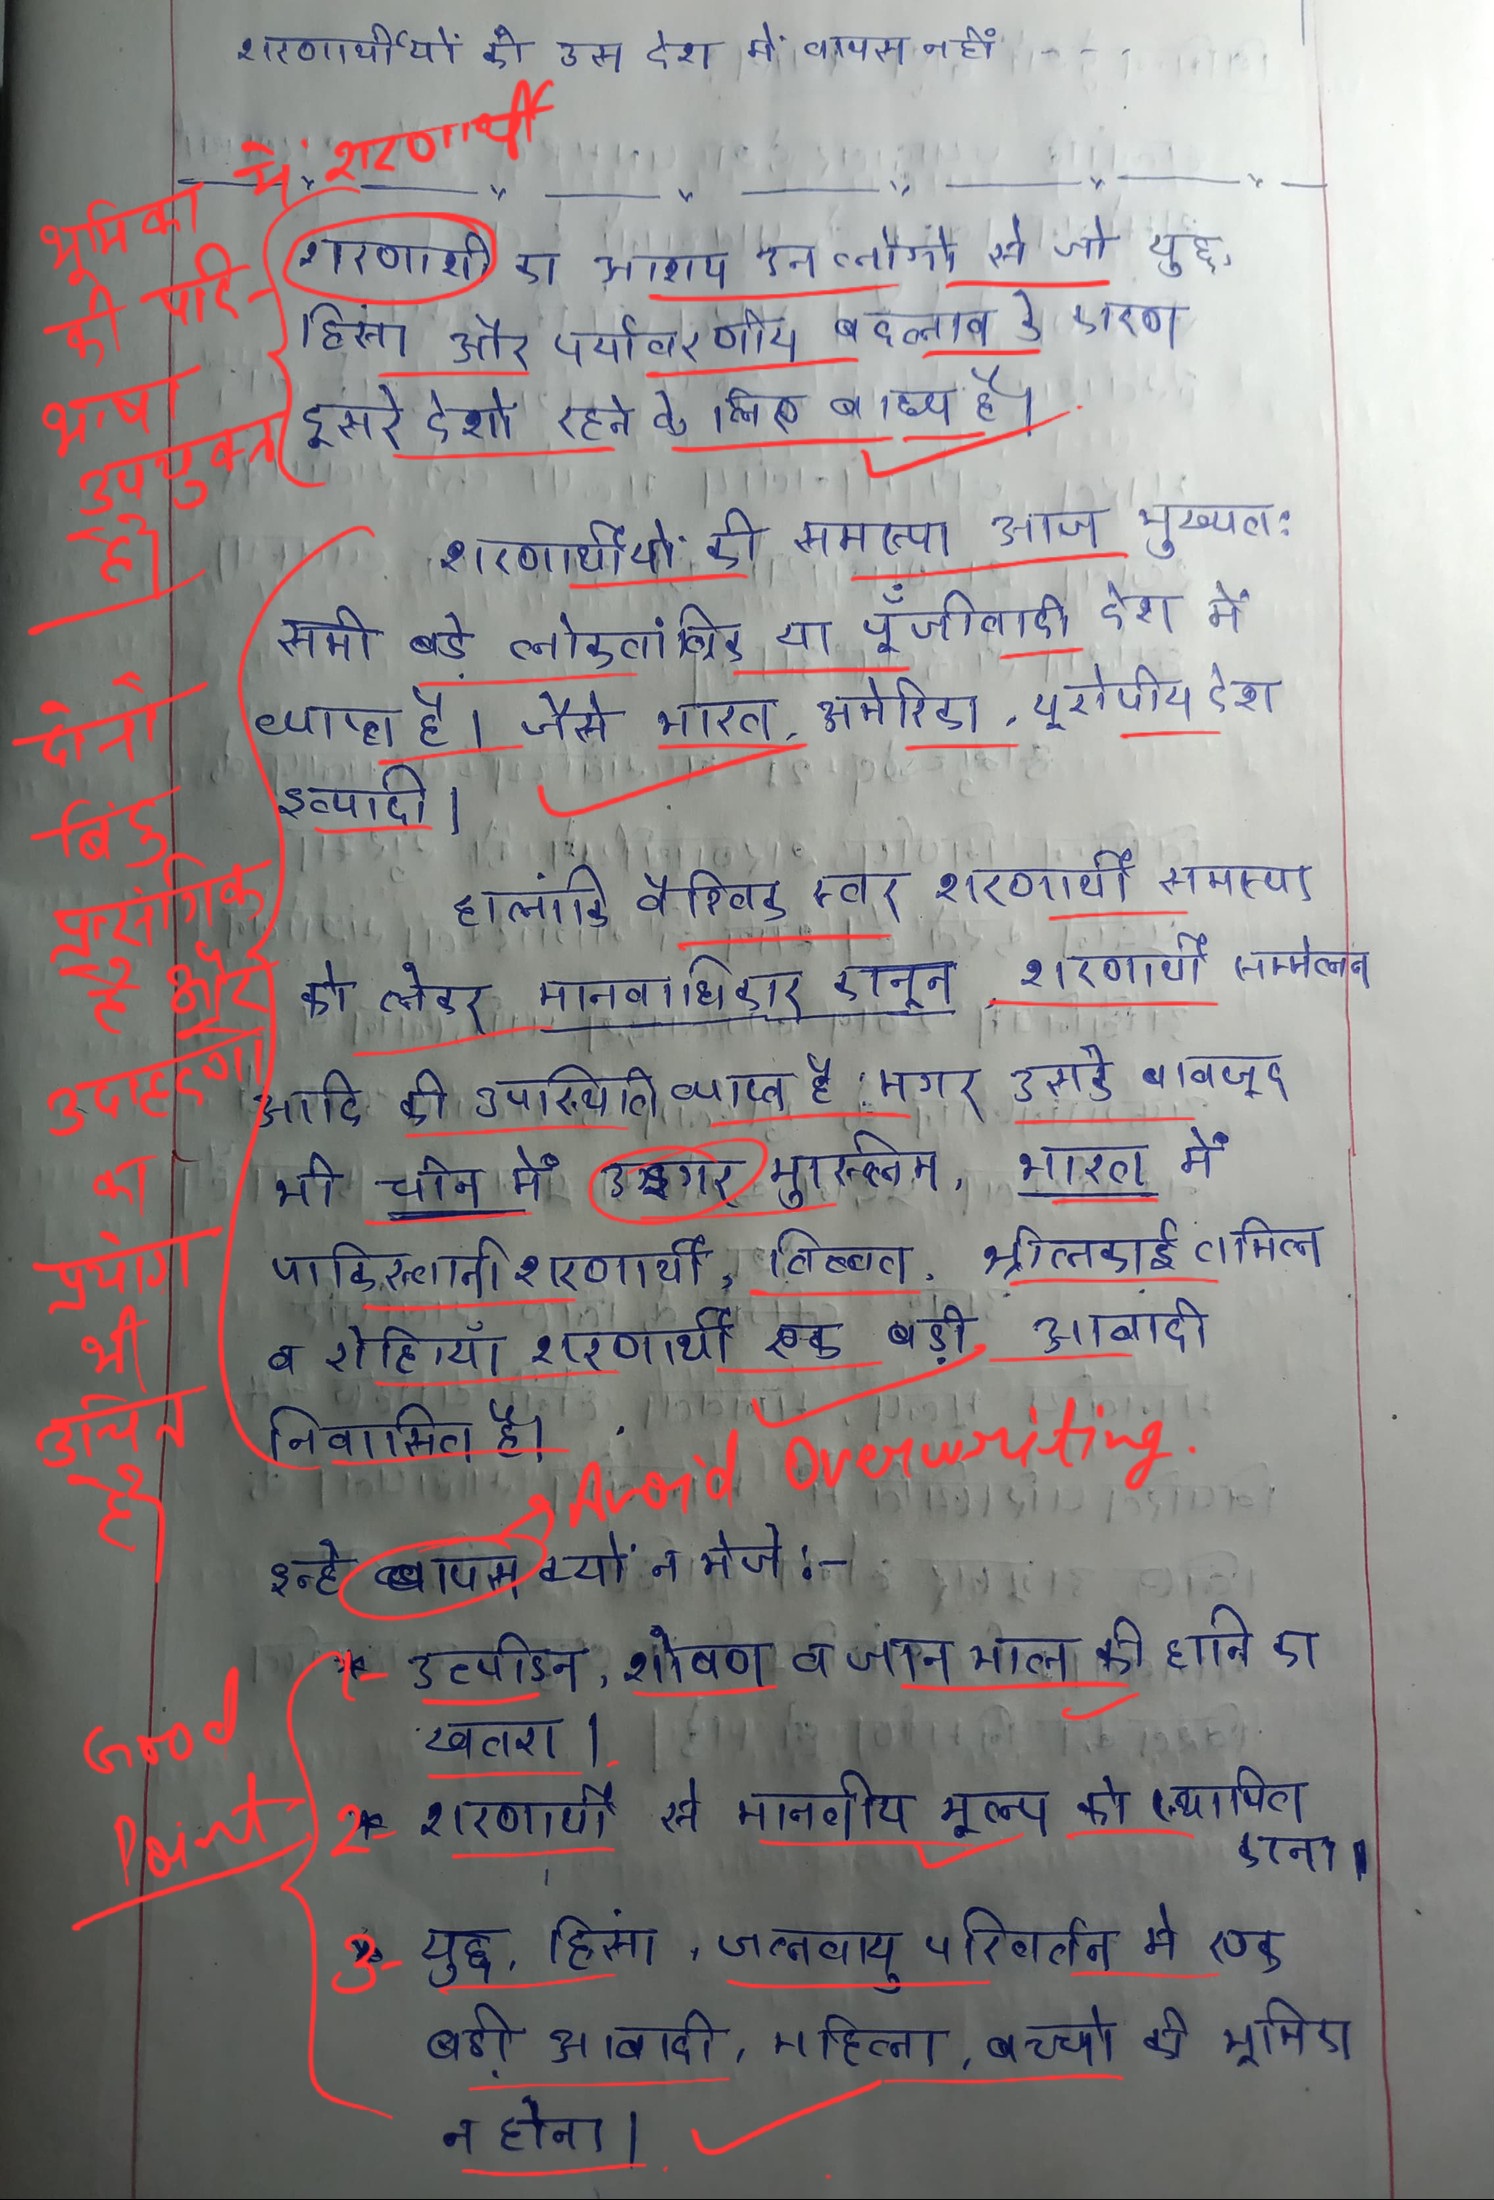 शरणार्थीयों को उस देश में वापस नहीं - - -
भूमिका में शरणार्थी
की परि-
भाषा
उपयुक्त
है।
शरणार्थी का आशय उन लोगो से जो युद्ध,
हिंसा और पर्यावरणीय बदलाव के कारण
दूसरे देशों रहने के लिए बाध्य है।
शरणार्थीयों की समस्या आज मुख्यत:
सभी बड़े लोकतांत्रिक या पूँजीवादी देश में
व्याप्त है। जैसे भारत, अमेरिका, यूरोपीय देश
इत्यादी।
हालांकि वैश्विक स्तर शरणार्थी समस्या
को लेकर मानवाधिकार कानून, शरणार्थी सम्मेलन
आदि की उपस्थिति व्याप्त है मगर उसके बावजूद
भी चीन में उइगर मुस्लिम, भारत में
पाकिस्तानी शरणार्थी, तिब्बत, श्रीलंकाई तमिल
व रोहिंग्याँ शरणार्थी एक बड़ी आबादी
निवासित है।
दोनों
बिंदु
प्रासंगिक
है और
उदाहरणों
का
प्रयोग
भी
उचित
है।
Avoid Overwriting.
इन्हे वापस क्यों न भेजे :-
Good
Point
1- उत्पीडन, शोषण व जान माल की हानि का
खतरा।
2- शरणार्थी से मानवीय मूल्य को स्थापित
करना।
3- युद्ध, हिंसा, जलवायु परिवर्तन मे एक
बड़ी आबादी, महिला, बच्चो की भूमिका
न होना।